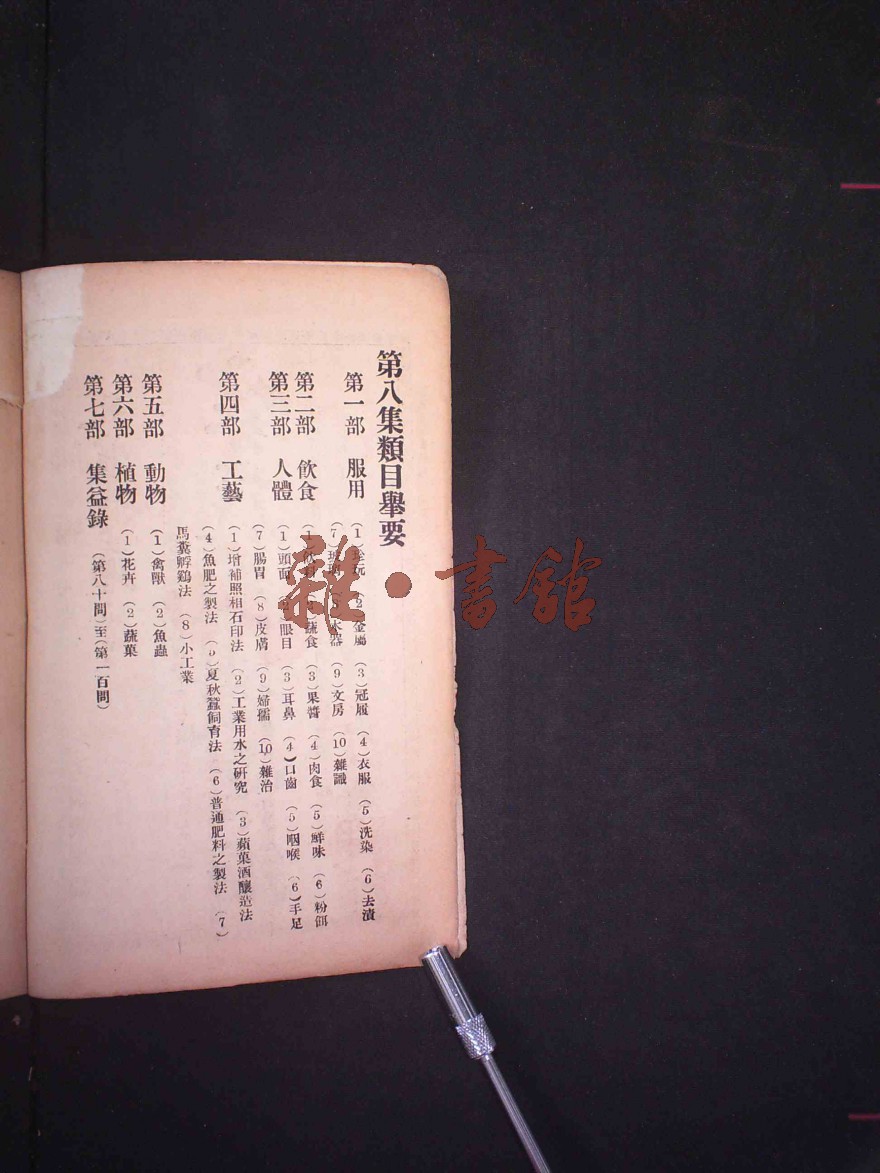 第八集類目舉要
第一部 服用 (1)珍玩 (2)金屬 (3)冠履 (4)衣服 (5)洗染 (6)去漬
(7) 木器 (9)文房 (10)雜識
第二部 飲食 (1)飲料 蔬食 (3)果醬 (4)肉食 (5)鮮味 (6)粉餌
第三部 人體 (1)頭面 (2)眼目 (3)耳鼻 (4)口齒 (5)咽喉 (6)手足
(7)腸胃 (8)皮膚 (9)婦孺 (10)雜治
第四部 工藝 (1)增補照相石印法 (2)工業用水之研究 (3)蘋菓酒釀造法
(4)魚肥之製法 (5)夏秋蠶飼育法 (6)普通肥料之製法 (7)
馬糞孵鷄法 (8)小工業
第五部 動物 (1)禽獸 (2)魚蟲
第六部 植物 (1)花卉 (2)蔬菓
第七部 集益錄 (第八十問)至(第一百問)
雜·書館